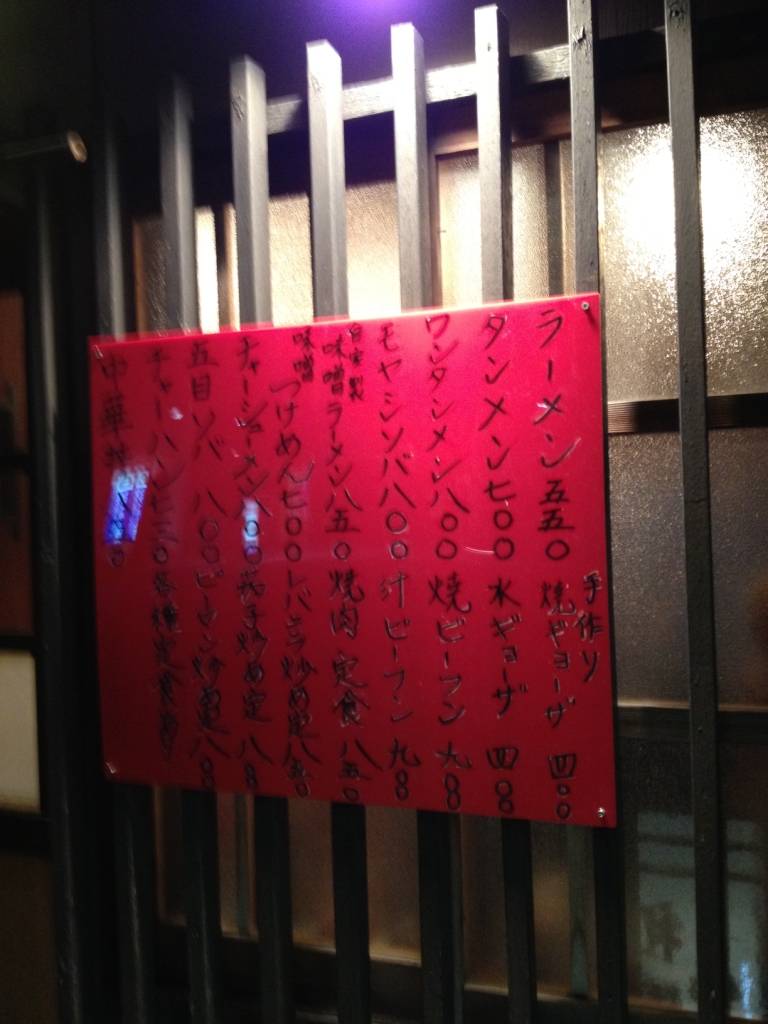 ラーメン 五五〇 手作り 焼ギョーザ 四〇〇
タンメン 七〇〇 水ギョーザ 四〇〇
ワンタンメン 八〇〇 焼ビーフン 九〇〇
モヤシソバ 八〇〇 汁ビーフン 九〇〇
自家製 味噌ラーメン 八五〇 焼肉定食 八五〇
味噌つけめん 七〇〇 レバニラ炒め定 八五〇
チャーシューメン 八〇〇 茄子炒め定 八〇〇
五目ソバ 八〇〇 ピーマン炒め定 八〇〇
チャーハン 各種定食
中華丼